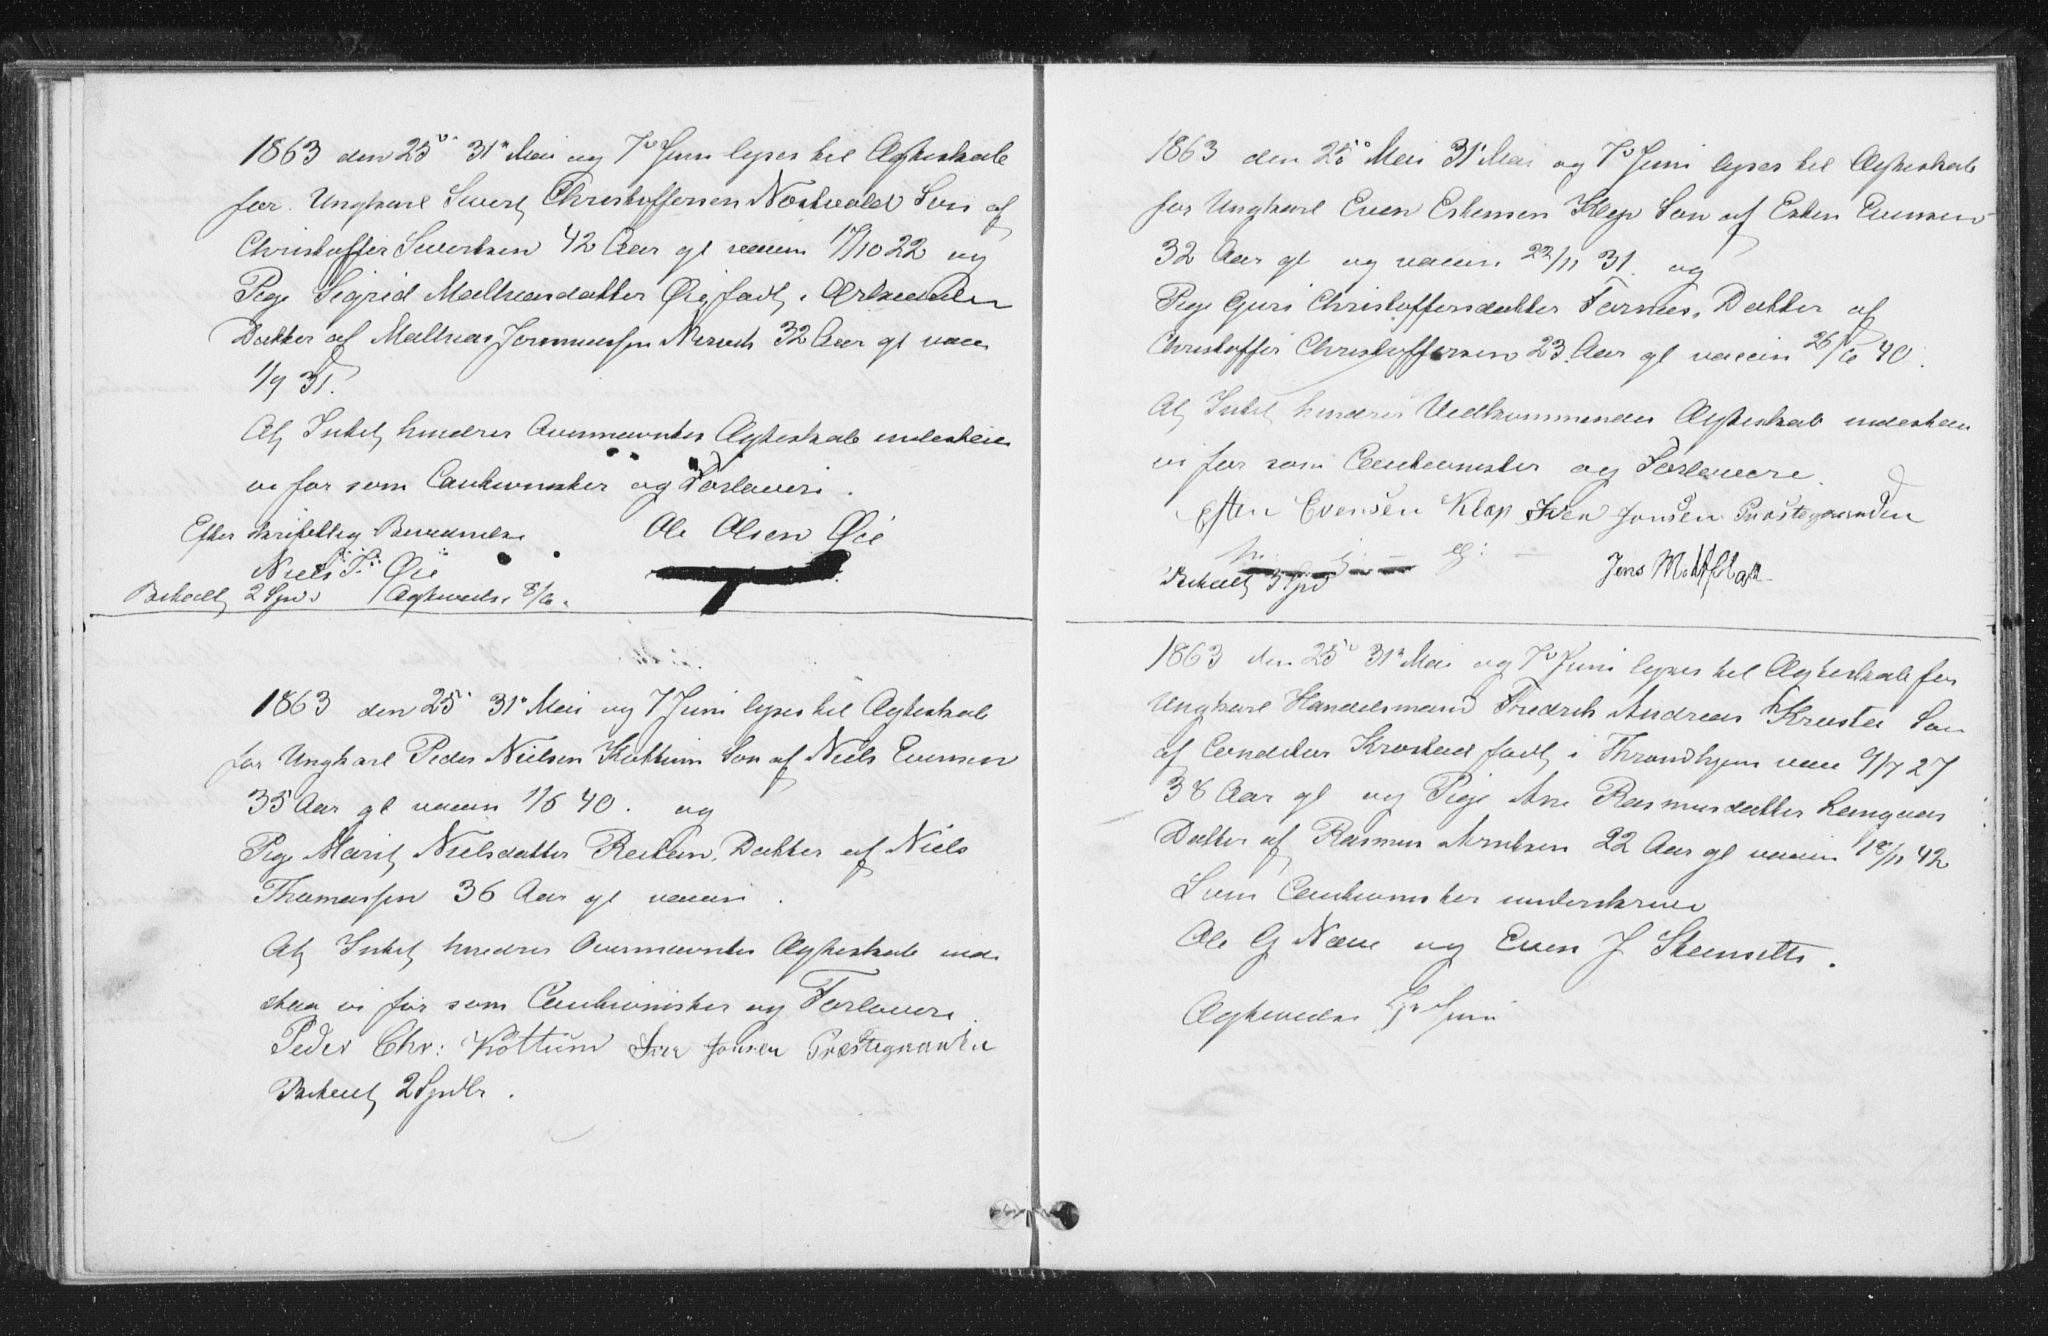 1863 den 25de 31te Mai og 7de Juni lyses til Ægteskab
for Ungkarl Sivert Christoffersen Nostvold Søn af
Christoffer Sivertsen 42 Aar gl vaccin 17/10 22 og
Pige Sigrid Mathiasdatter Øie født i
Datter af Mathias 32 Aar gl vacc
1/9 31.
At Intet hindrer Ovennævntes Ægteskab indestaae
vi for som Cautionister og Forlovere.
Efter skriftlig Bemyndigelse Ole Olsen Øie
Niels T. Øie
Betalt 2 Spd. Ægteviede 8/6.
1863 den 25 31te Mai og 7 Juni lyses til Ægteskab
for Ungkarl Peder Nielsen Kottum Søn af Niels Evensen
35 Aar gl vaccin 1/6 40. og
Pige Marit Nielsdatter Reitan, Datter af Niels
Thomassen 36 Aar gl vaccin .
At Intet hindrer Ovennævntes Ægteskab inde
staa vi for som Cautionister og Forlovere.
Peder Chr: Kottum Iver Jonsen Præstegaarden
Betalt 2 Spdlr.
1863 den 25de Mai 31te Mai og 7de Juni lyses til Ægteskab
for Ungkarl Even Estensen Klep Søn af Esten Evensen
32 Aar gl og vaccin. 22/11 31. og
Pige Guri Christoffersdatter Fornes, Datter af
Christoffer Christoffersen 23 Aar gl vaccin 26/6 40.
At Intet hindrer Vedkommendes Ægteskab indestaa
vi for som Cautionister og Forlovere.
Esten Evensen Klep Iver Jonsen Præstegaarden
Betalt 3 Spd Jens M.
1863 den 25de 31te Mai og 7de Juni lyses til Ægteskab for
Ungkarl Handelsmand Fredrik Andreas Søn
af Conditor født i Throndhjem vacc 9/7 27
38 Aar gl og Pige Ane Rasmusdatter Langaas
Datter af Rasmus Arntsen 22 Aar gl vaccin 18/11 42
Som Cautionister underskrive
Ole G Næve og Even J Steinsett.
Ægteviede Juni